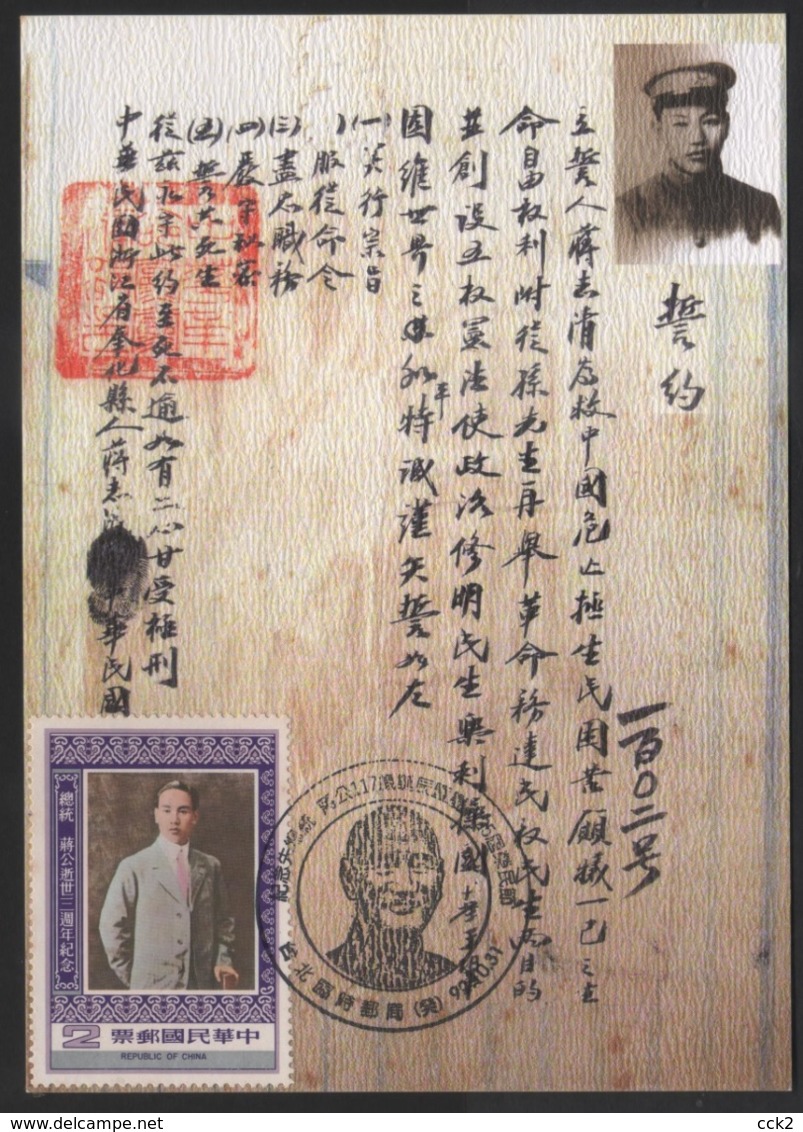 誓約
一百〇二号
立誓人蔣志清為救中國危亡拯生民困苦願犧一己之生
命自由权利附從孫先生再舉革命務達民权民生兩目的
並創設五权憲法使政治修明民生樂利措國
囯維世界之平和特誠謹矢誓如左
(一)实行宗旨
服從命令
(三)盡忠職務
(四)嚴守秘密
(五)誓共死生
從茲永守此約至死不逾如有二心甘受極刑
中華民國浙江省奉化縣人蔣志清 中華民國
總統 蔣公逝世三週年紀念
2 票郵國民華中
REPUBLIC OF CHINA
台北臨時郵局(癸)
cck2